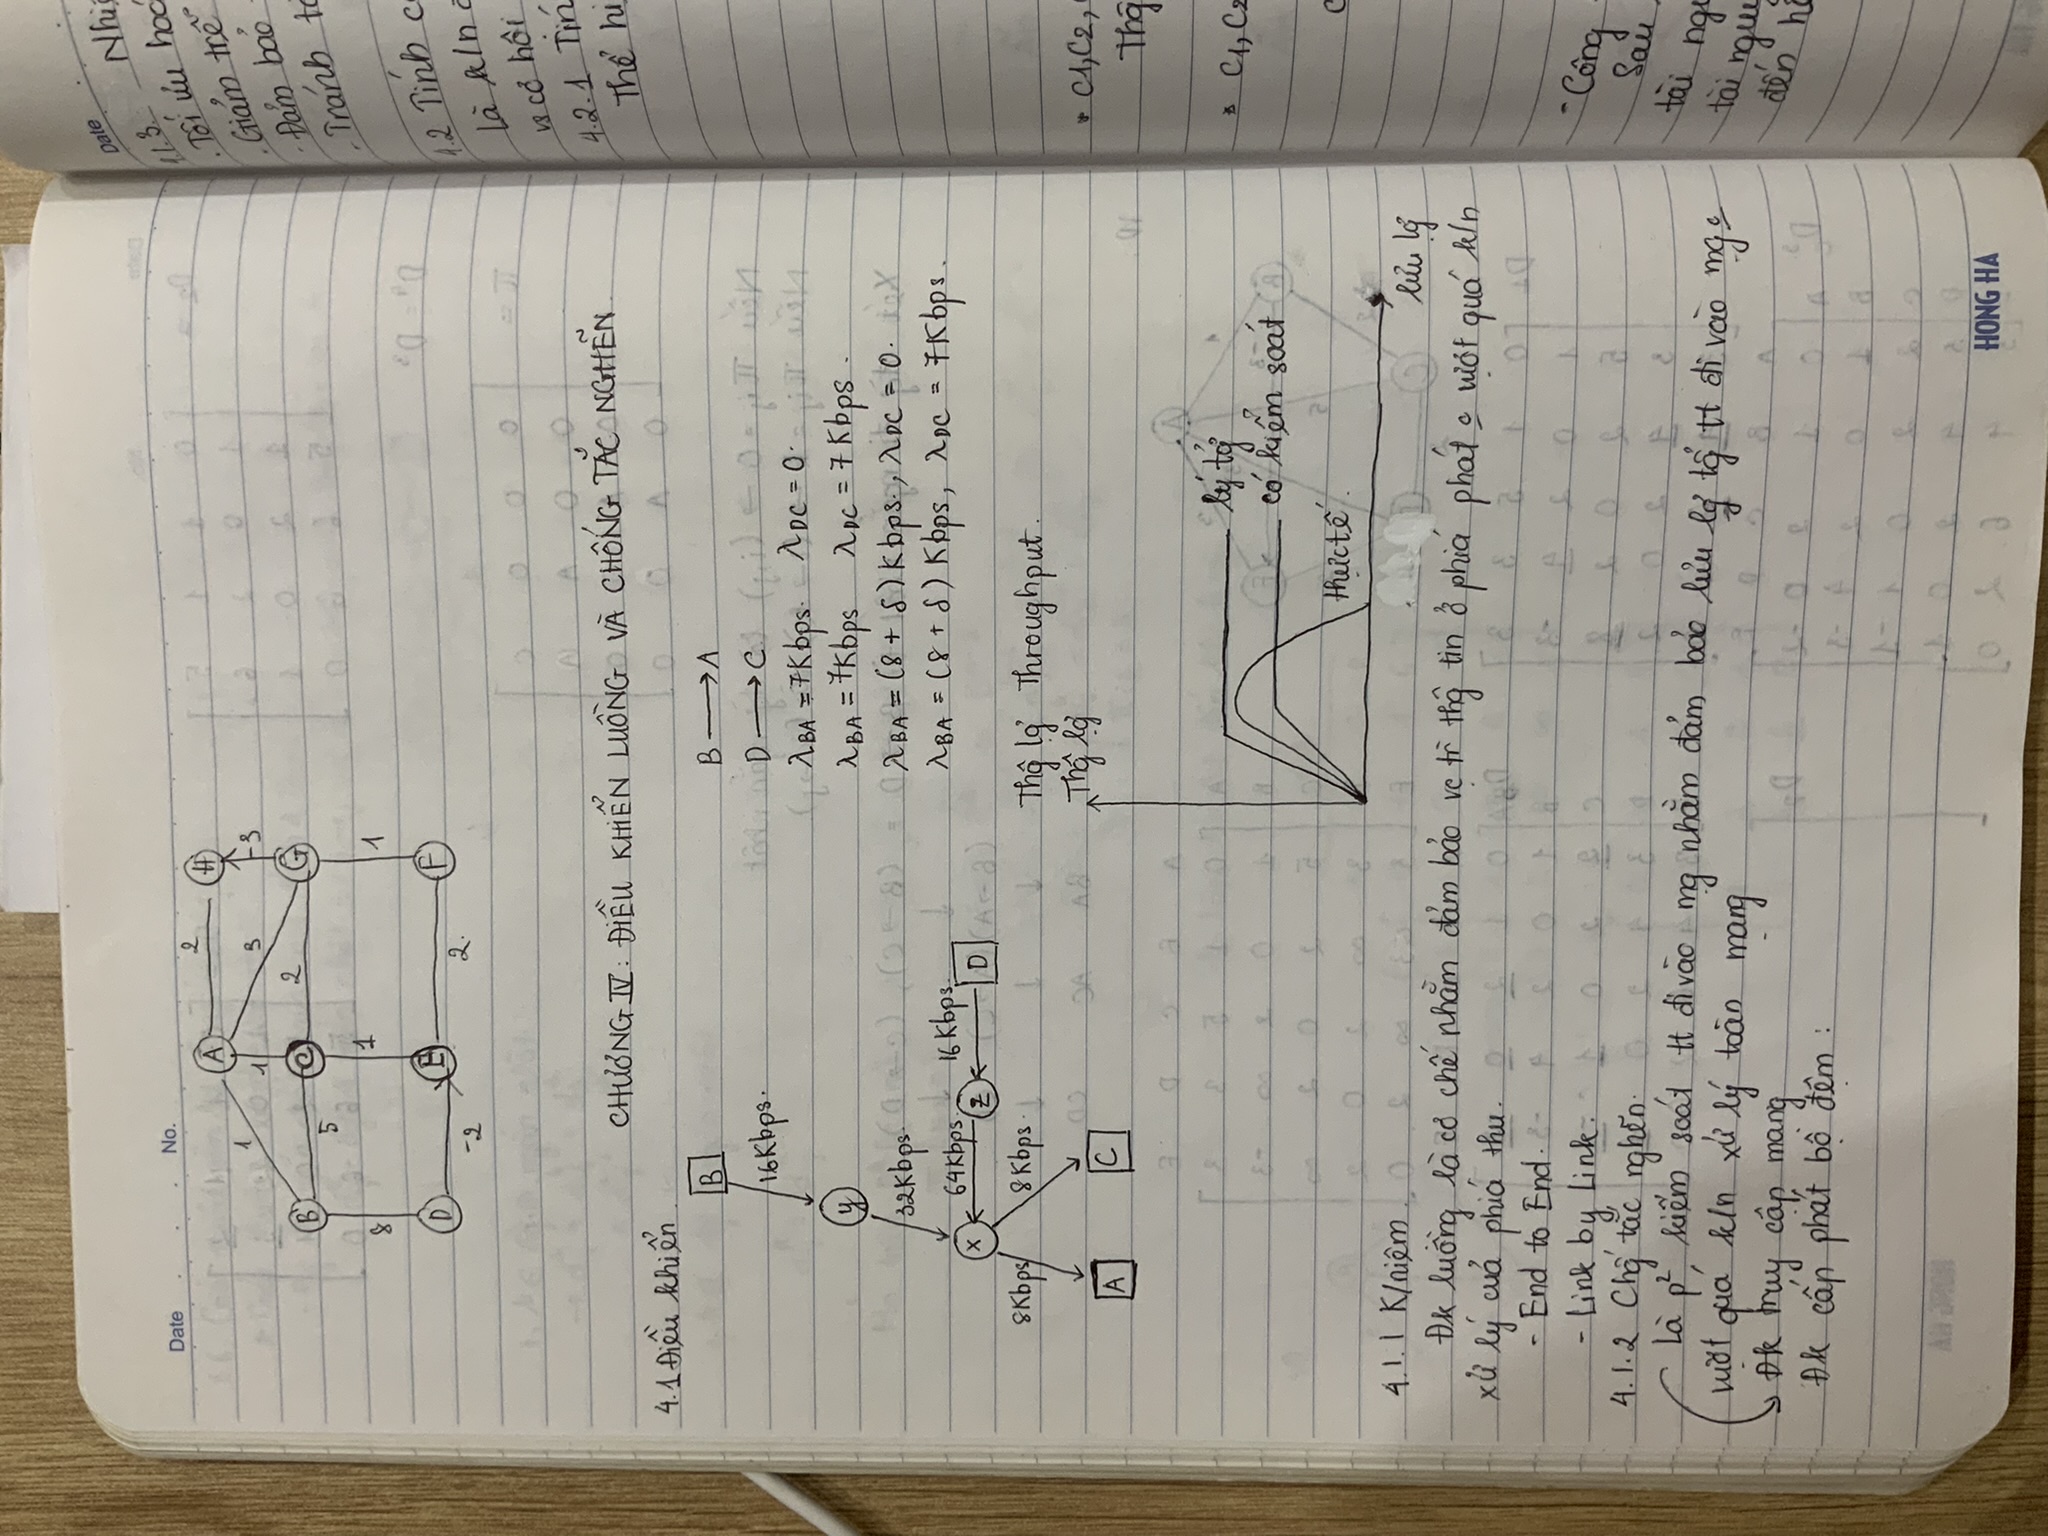 Date No.
A 2 H
1 1 3 -3
B 5 C 2 G
8 1 1
D -2 E 2. F
CHƯƠNG IV: ĐIỀU KHIỂN LUỒNG VÀ CHỐNG TẮC NGHẼN
4.1 Điều khiển
B
16Kbps.
y
32Kbps.
x 64Kbps z 16Kbps. D
8Kbps 8Kbps.
A C
B → A
D → C
λBA = 7Kbps. λDC = 0.
λBA = 7Kbps λDC = 7Kbps.
λBA = (8 + δ) Kbps., λDC = 0.
λBA = (8 + δ) Kbps, λDC = 7Kbps.
Thĝ lg̛ Throughput.
Thĝ lg̛
lý tg̛̉
có kiểm soát
thực tế
lưu lg̛
4.1.1 K/niệm
Đk luồng là cơ chế nhằm đảm bảo vc trì thĝ tin ở phiá phát c̲ vượt quá k/n
xử lý cuả phiá thu.
- End to End.
- Link by Link.
4.1.2 Chĝ́ tắc nghẽn.
Là p² kiểm soát tt đi vào mg nhằm đảm bảo lưu lg̛ tg̉̂ tt đi vào mg c̲
vượt quá k/n xử lý toàn mạng
Đk truy cập mạng
Đk cấp phát bộ đệm:
HONG HA
Date
4.1.3. Nhiệ
. Tối ưu hoá
. Giảm trễ
. Đảm bảo
. Tránh tắ
4.2 Tính c
là k/n
vs cơ hội
4.2.1 Tín
Thể hi
* C1, C2,
Thĝ
* C1, C2
- Công
Sau
tài ngu
tài nguy
đến h